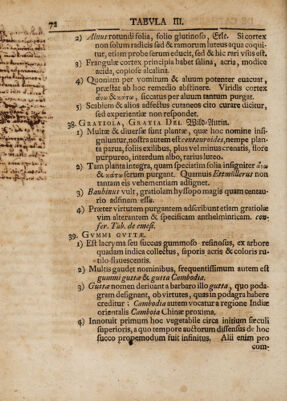 72 TABVLA III.
2) Alnus rotundi folia, folio glutinoso, Erle. Si cortex
non solum radicis sed & ramorum luteus aqua coqui-
tur, etiam probe ferum educit, sed & hic rari usus est.
3) Frangulæ cortex principia habet salina, acria, modice
acida, copiose alcalina.
4) Quoniam per vomitum & alvum potenter evacuat,
præstat ab hoc remedio abstinere. Viridis cortex
ἄνω & κάτω, siccatus per alvum tantum purgat.
5) Scabiem & alios adfectus cutaneos cito curare dicitur,
sed experientiæ non respondet.
38. GRATIOLA, GRATIA DEI, Wild-Aurin.
1) Multæ & diversæ sunt plantæ, quæ hoc nomine insi-
gniuntur, nostra autem est centauroides, nempe plan-
ta parva, foliis exibus, plus vel minus crenatis, flore
purpureo, interdum albo, rarius luteo.
2) Tam planta integra, quam speciatim folia insigniter ἄνω
& κάτω serum purgant. Quamvis Ettmüllerus non
tantam eis vehementiam adsignet.
3) Bauhinus vult, gratiolam hyssopo magis quam centau-
rio adfinem esse.
4) Præter virtutem purgantem adscribunt etiam gratiolæ
vim alterantem & specificam anthelminticam. con-
fer. Tub. de emesi.
39. GVMMI GVTTÆ.
1) Est lacryma seu succus gummoso-resinosus, ex arbore
quadam indica collectus, saporis acris & coloris ru-
tilo-flavescentis.
2) Multis gaudet nominibus, frequentissimum autem est
gummi guttæ & gutta Cambodia.
3) Guttæ nomen derivant a barbaro illo gutta, quo poda-
gram designant, ob virtutes, quas in podagra habere
creditur: Cambodia autem vocatur a regione Indiæ
orientalis Camboia Chinæ proxima.
4) Innotuit primum hoc vegetabile circa initium sæculi
superioris, a quo tempore auctorum dissensus de hoc
succo propemodum fuit infinitus. Alii enim pro
com-